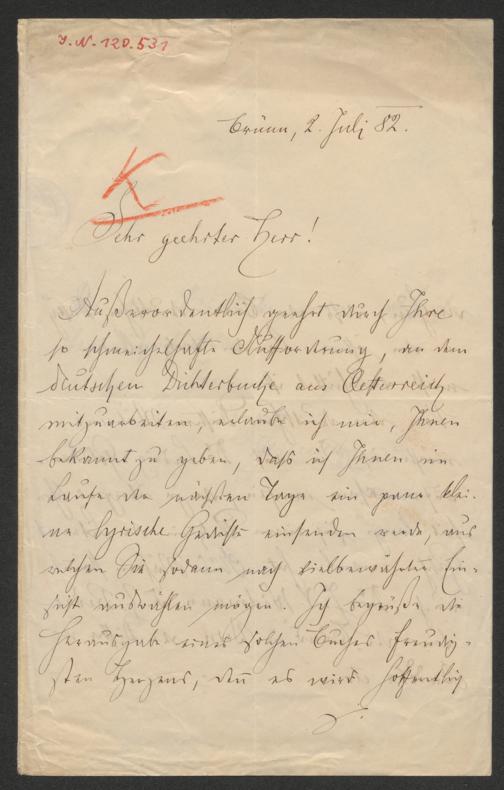 J.N. 120.531
Brünn, 2. Juli 82.
K
Sehr geehrter Herr!
Außerordentlich geehrt durch Ihre
so schmeichelhafte Aufforderung, an dem
deutschen Dichterbuche aus Oesterreich
mitzuarbeiten, erlaube ich mir, Ihnen
bekannt zu geben, daß ich Ihnen im
Laufe der nächsten Tage ein paar klei-
ne lyrische Gedichte einsenden werde, aus
welchen Sie sodann nach vielbewährter Ein-
sicht auswählen mögen. Ich begrüße die
Herausgabe eines solchen Buches freudig-
sten Herzens, den̅ es wird hoffentlich